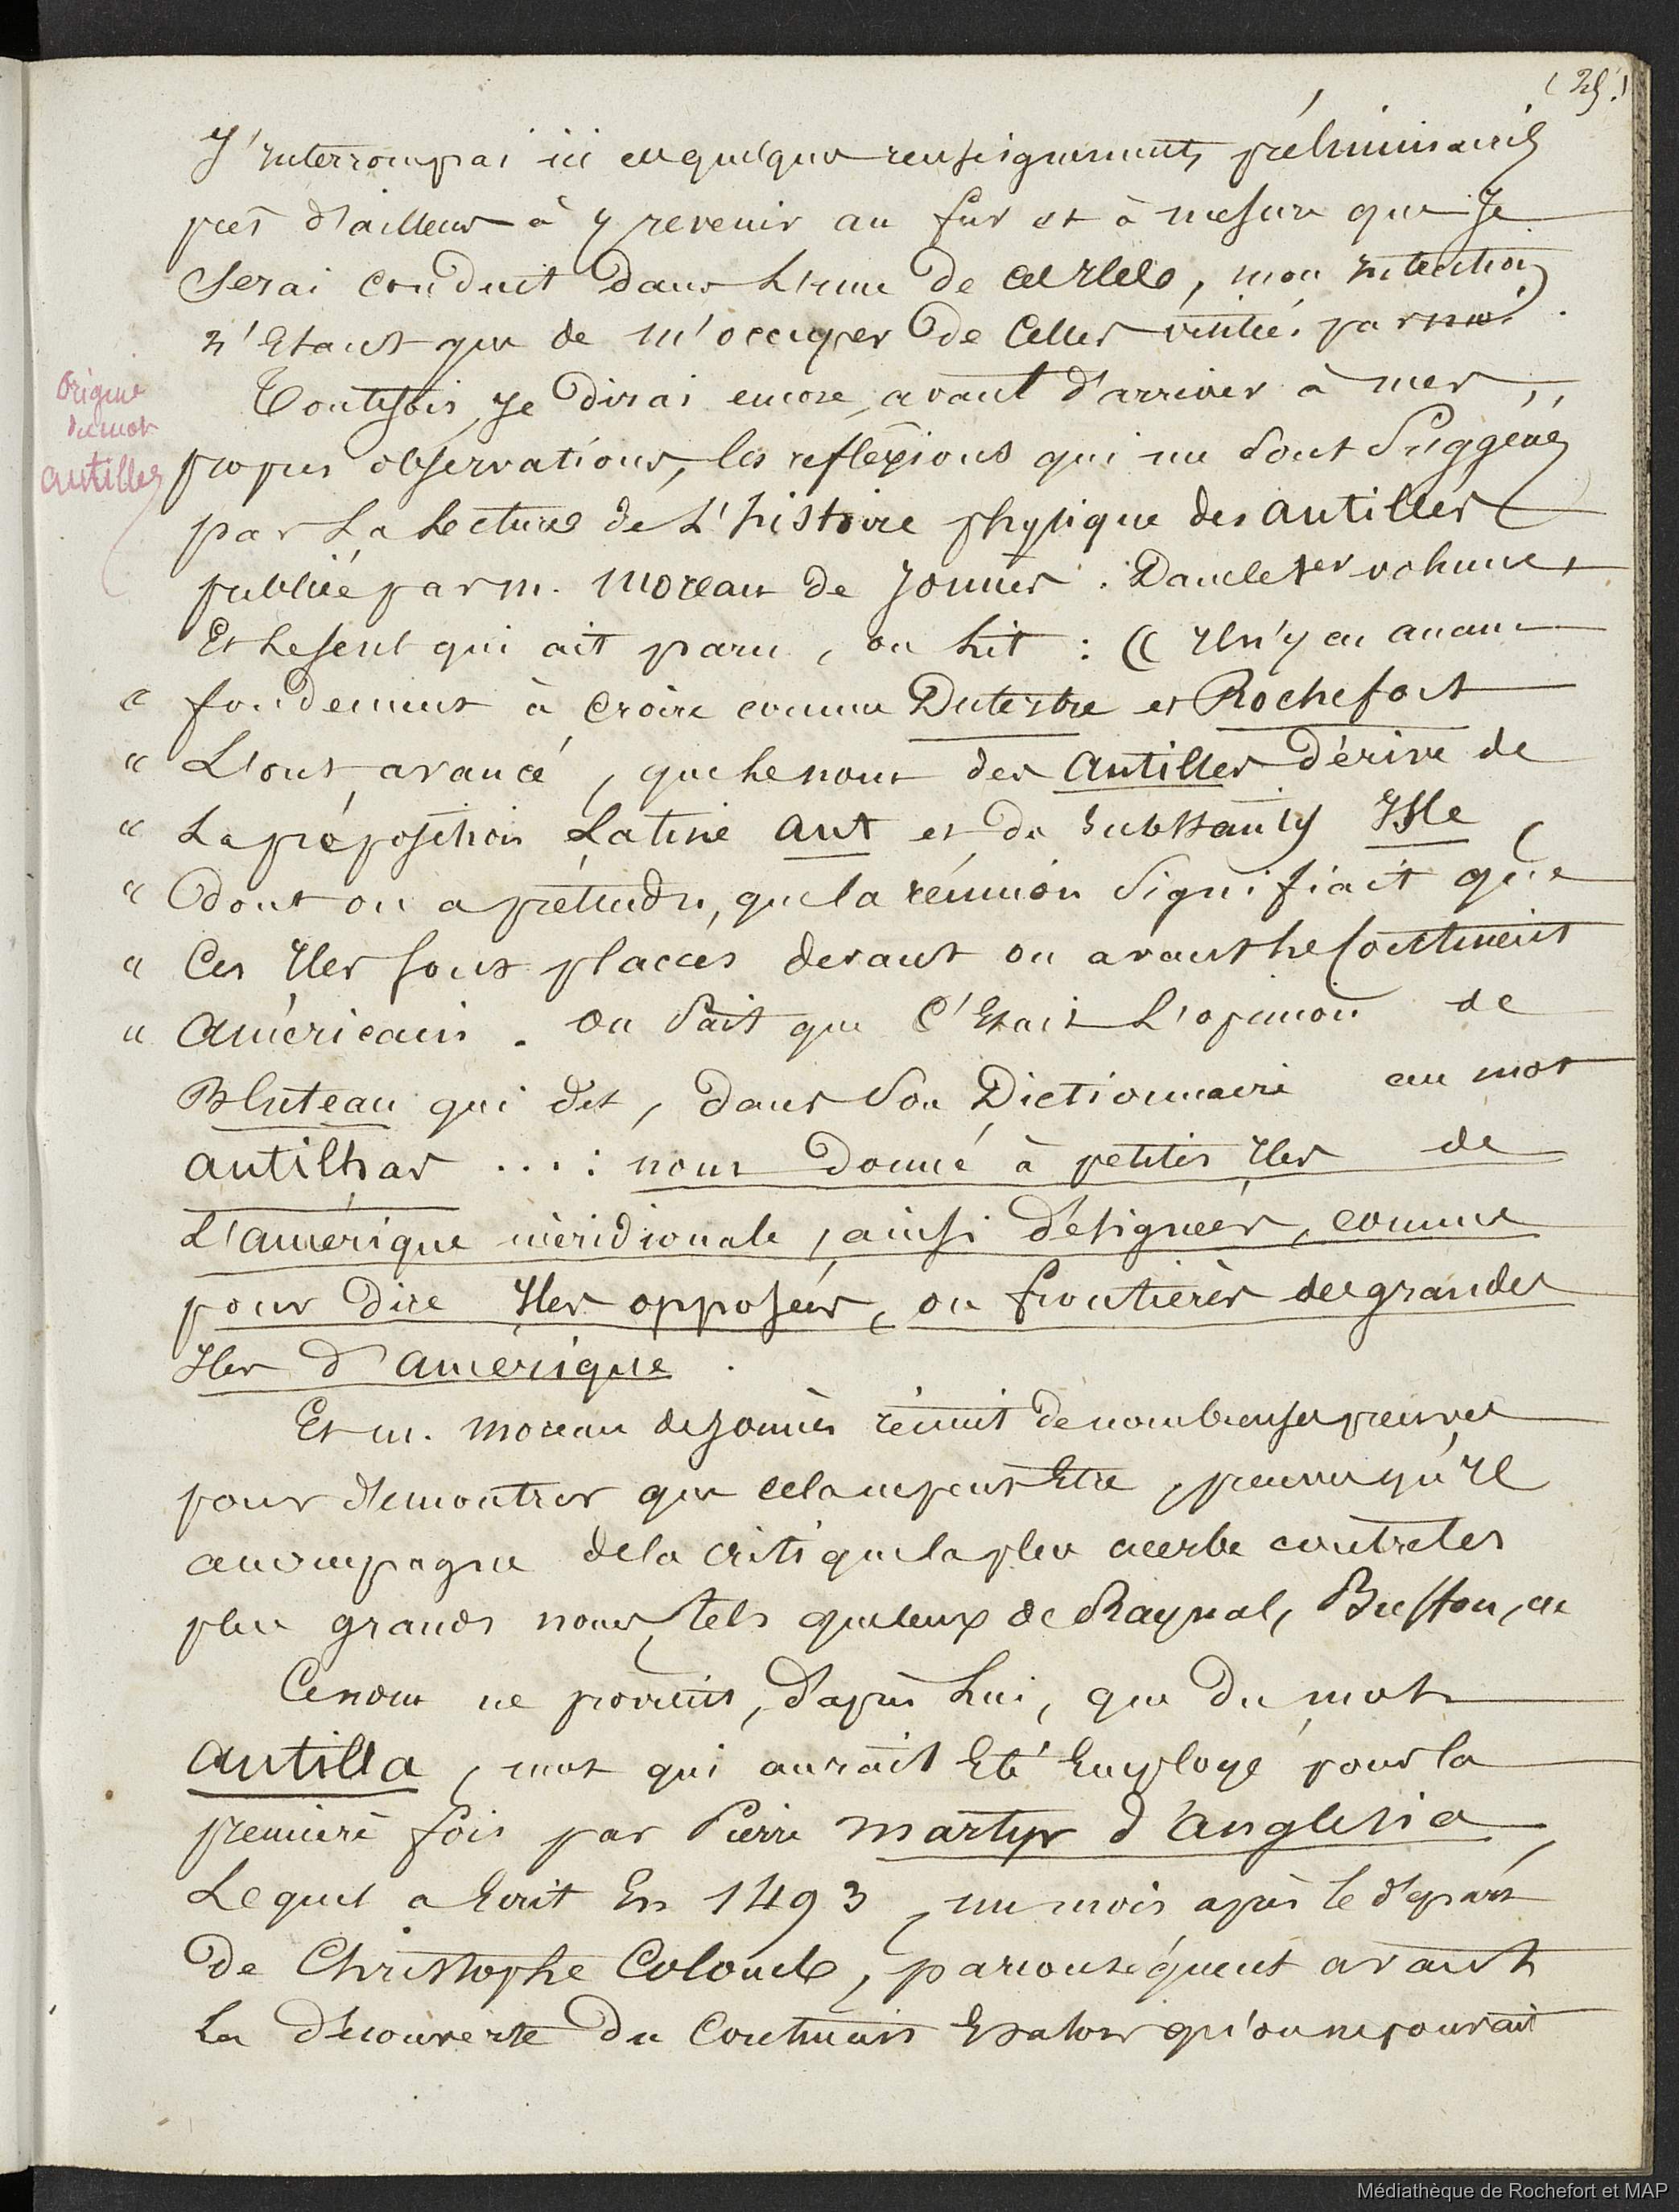 (25.)
J'interrompai ici ces quelques renseignements préliminaires
pret d'ailleurs à y revenir au fur et à mesure que Je
Serai conduit dans L'une de ces Iles, mon intention
n'Etant que de m'occuper de Celles visitées par moi.
Origine
du mot
antilles
Toutefois, Je dirai encore, avant d'arriver à mes,,
propres observations, les reflexions qui me sont Suggérées
par La Lecture de L'histoire physique des antilles
publiée par m. moreau de Jonnès. Dans le 1er volume,
Et le seul qui ait paru, on Lit : « Il n'y en aucun
« fondement à Croire comme Dutertre et Rochefort
« L'ont avancé, que le nom des antilles dérive de
« La préposition Latine ant et du substantif Isle
« dont on a prétendu, que la réunion signifiait que
« Ces Iles sont placées devant ou avant le Continent
« américain. on sait que C'Etait L'opinion de
Bluteau qui dit, dans Son Dictionnaire au mot
antilhas ....: nom donné à petites Iles de
L'amérique méridionale, ainsi désignées, comme
pour dire Iles opposées, ou frontières des grandes
Iles d'amerique.
Et m. moreau de Jonnès réunit de nombreuses preuves
pour démontrer que cela ne peut Etre, preuves qu'Il
accompagne de la critique la plus acerbe contre les
plus grands noms, tels que ceux de Raynal, Buffon, &
Ce nom ne provient, d'après Lui, que du mot
antilla, mot qui aurait Eté Employé pour la
premiere fois par Pierre martyr d'angleria,
Lequel a Ecrit En 1493, un mois après le départ
de Christophe Colomb, par conséquent avant
La découverte du Continent Et alors qu'on ne pouvait
Médiathèque de Rochefort et MAP